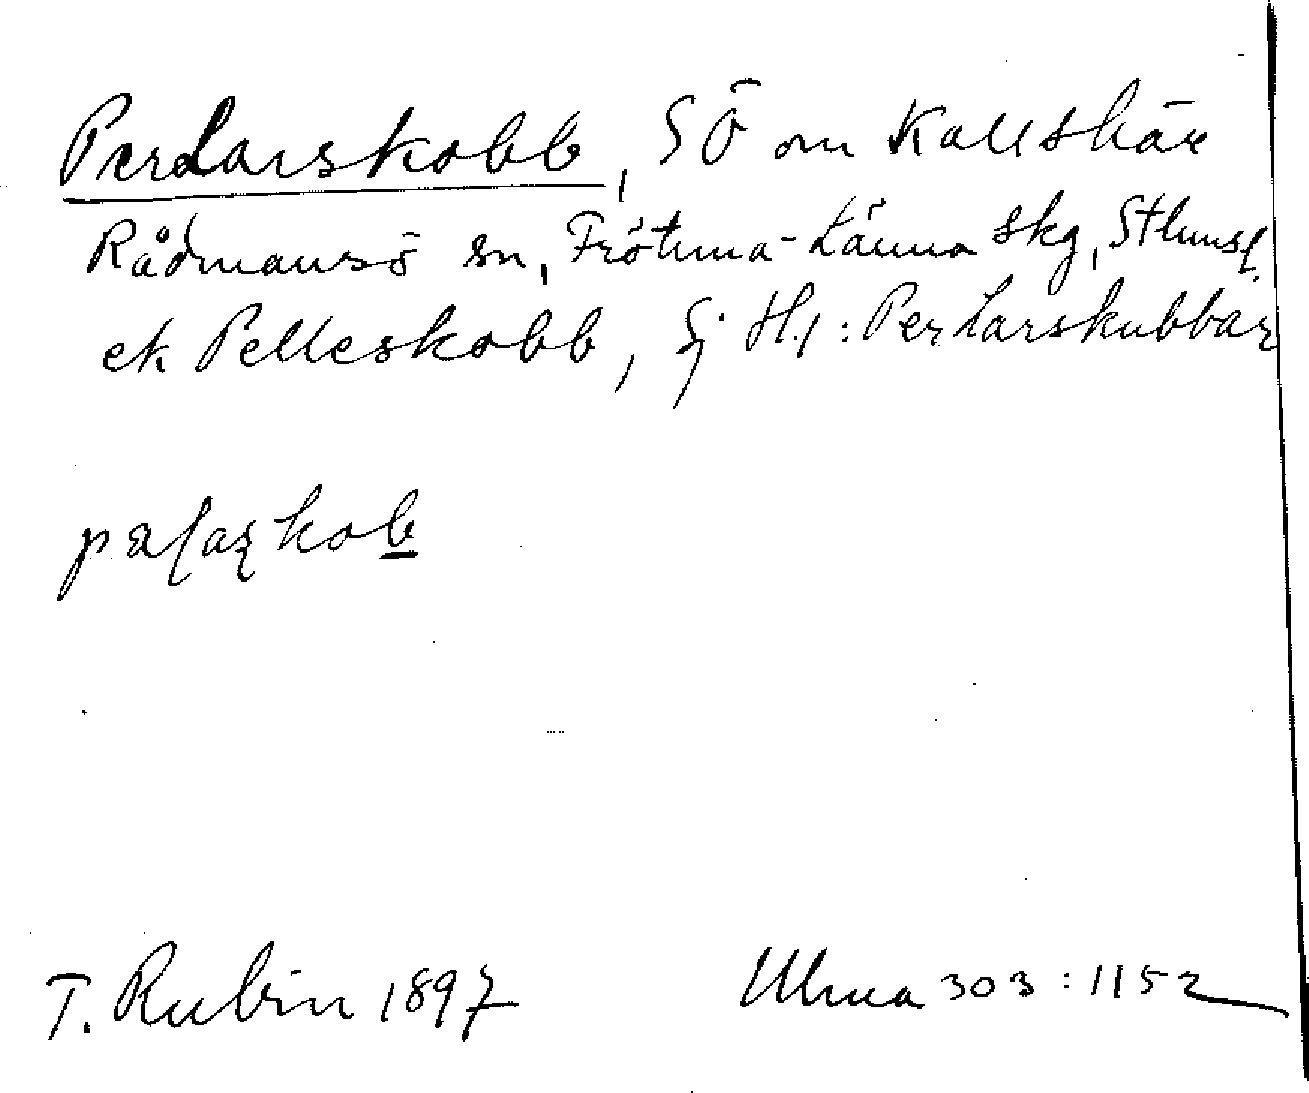 PerLarskobb, SÖ om Kallskär
Rådmansö sn, Frötuna-Länna skg, Sthmsl.
ek Pelleskobb, Gj Hf: Per Larskubbar
palaʂkob
T. Rubin 1897
Ulma 303:1152